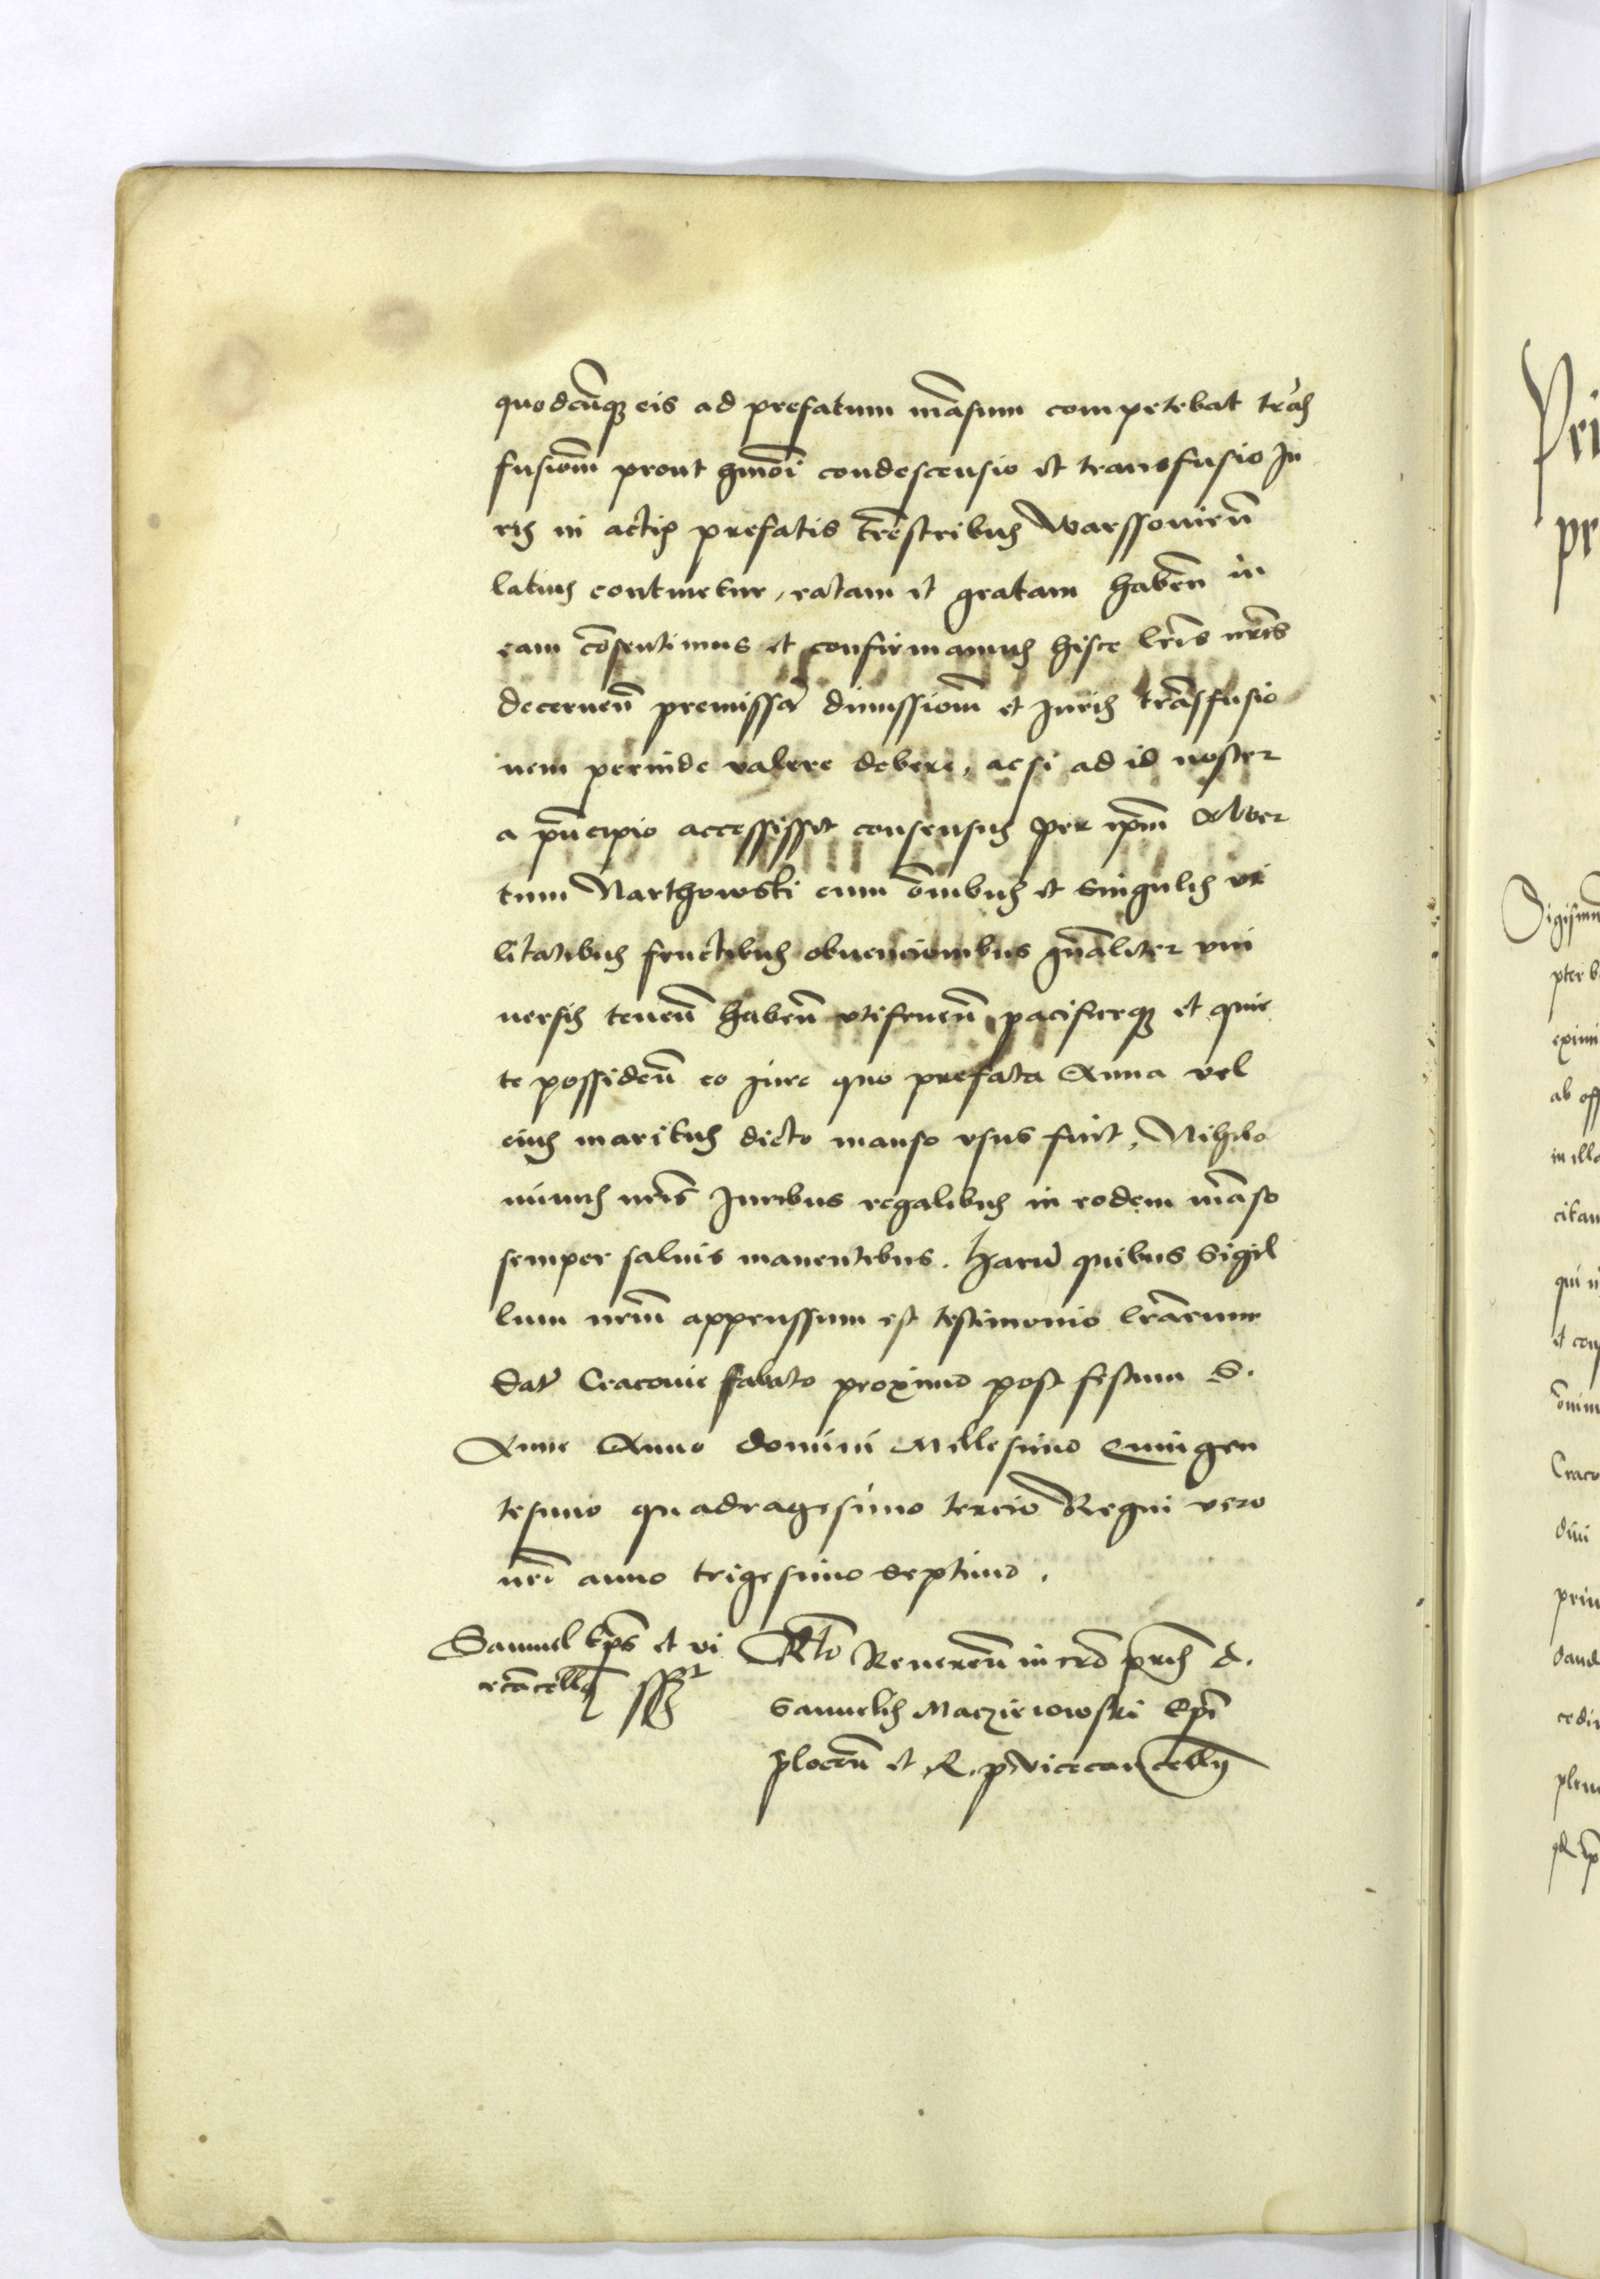 quodcūq eis ad prefatum māsum competebat trās
fusionē prout hmōi condescensio et transfusio Iu
ris in actis prefatis trēstribus Warssovien̄
latius continetur, ratam et gratam haben̄ in
eam cōsentimus et confirmamus hisce lrīs nrīs
decernen̄ premissā dimissionē et Iuris trāsfusio
nem perinde valere debere, acsi ad id noster
a prīncipio accessissit consensus per ipm̄ Alber
tum Narthowski cum ōmibus et singulis vti
litatibus fructibus obvencionibus gn̄aliter vni
versis tenen̄ haben̄ vtifruen̄ pacificeq et quie
te possiden̄ eo iure quo prefata Anna vel
eius maritus dicto manso vsus fuit, Nihilo
minus nrīs Iuribus regalibus in eodem māso
semper salvis manentibus. Harū quibus Sigil
lum nrm̄ appenssum est testimonio lrārum
Dat Cracovie sabato proximo post festum S.
Anne Anno domini Millesimo Quingen
tesimo quadragesimo tercio Regni vero
nrī anno trigesimo septimo.
Samuel Ep̄s et vi
cecācellq sst
Rlō Reveren̄ in crō prīs d.
Samuelis Maczieiowski Epī
plocen̄ et R. p. vicecancellȳ
Pri
pr
Sigismun
pter b
eximi
ab off
in illa
citan
qui
et con
ōnim
Craco
dni
prin
dand
cedi
plen
R p